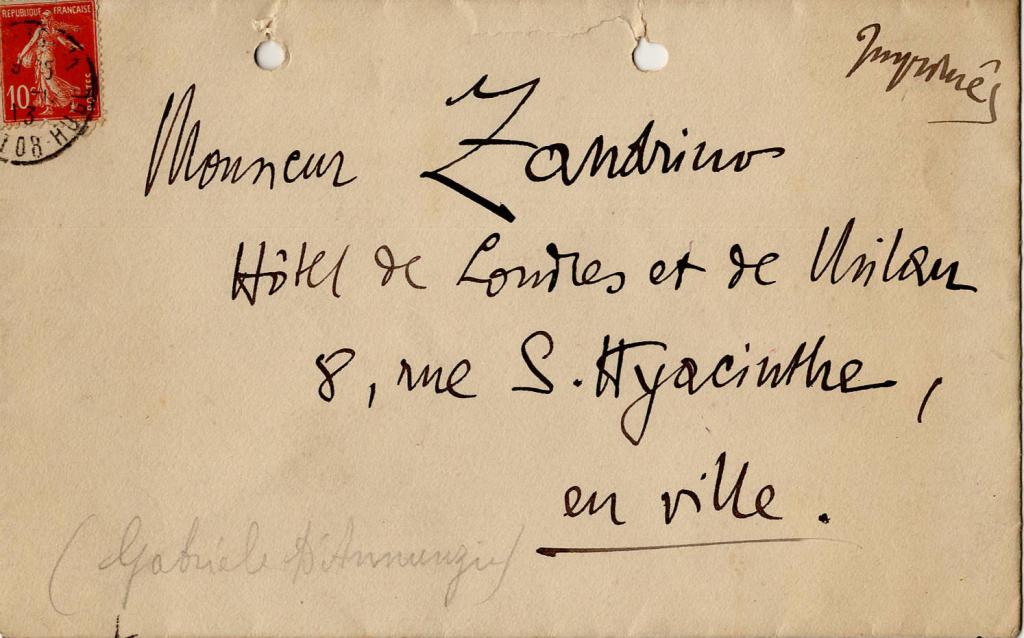 REPUBLIQUE FRANÇAISE
10c POSTES
Imprimés
Monsieur Zandrino
Hôtel de Londres et de Milan
8, rue S. Hyacinthe,
en ville.
(Gabriele D'Annunzio)